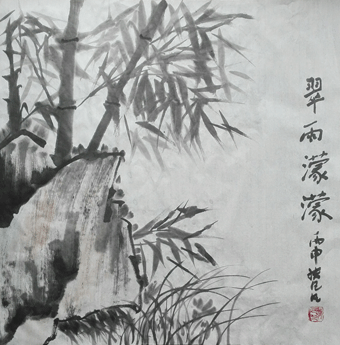 翠雨濛濛
丙申